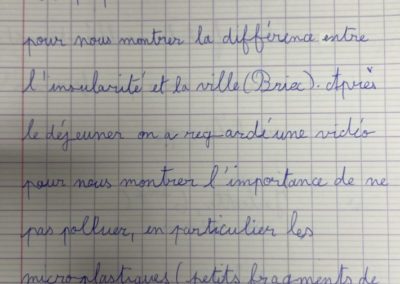 pour nous montrer la différence entre
l'insularité et la ville (Briec). Après
le déjeuner on a regardé une vidéo
pour nous montrer l'importance de ne
pas polluer, en particulier les
microplastiques (petits fragments de